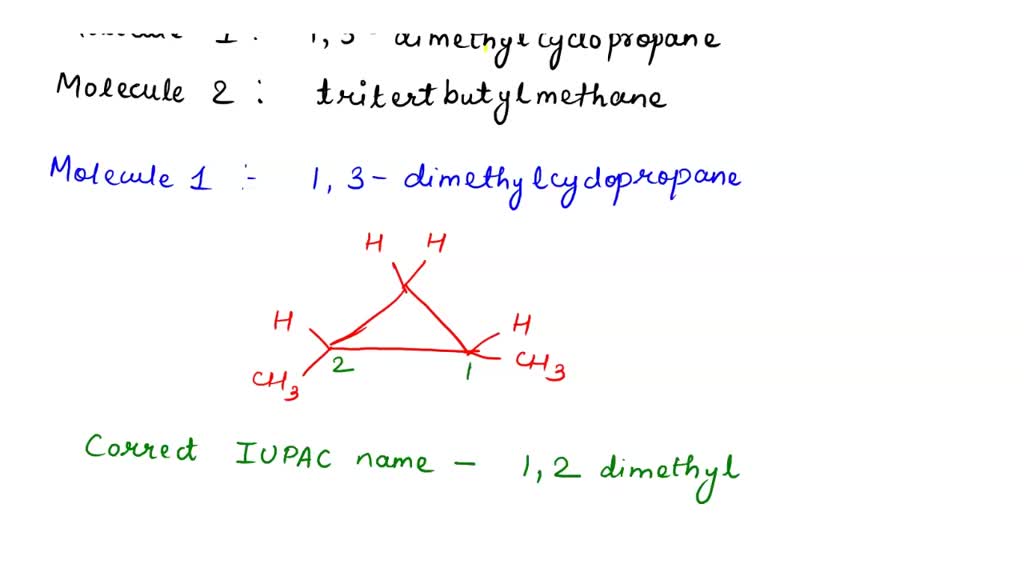 1 : 1,3 - dimethylcyclopropane
Molecule 2 : tritertbutylmethane
Molecule 1 :- 1,3 - dimethylcyclopropane
H H
H H
CH3 2 1 CH3
Correct IUPAC name - 1,2 dimethyl